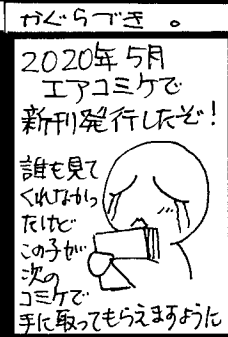 かぐらづき。
2020年5月
エアコミケで
新刊発行したぞ!
誰も見て
くれなかっ
たけど
この子が
次の
コミケで
手に取ってもらえますように